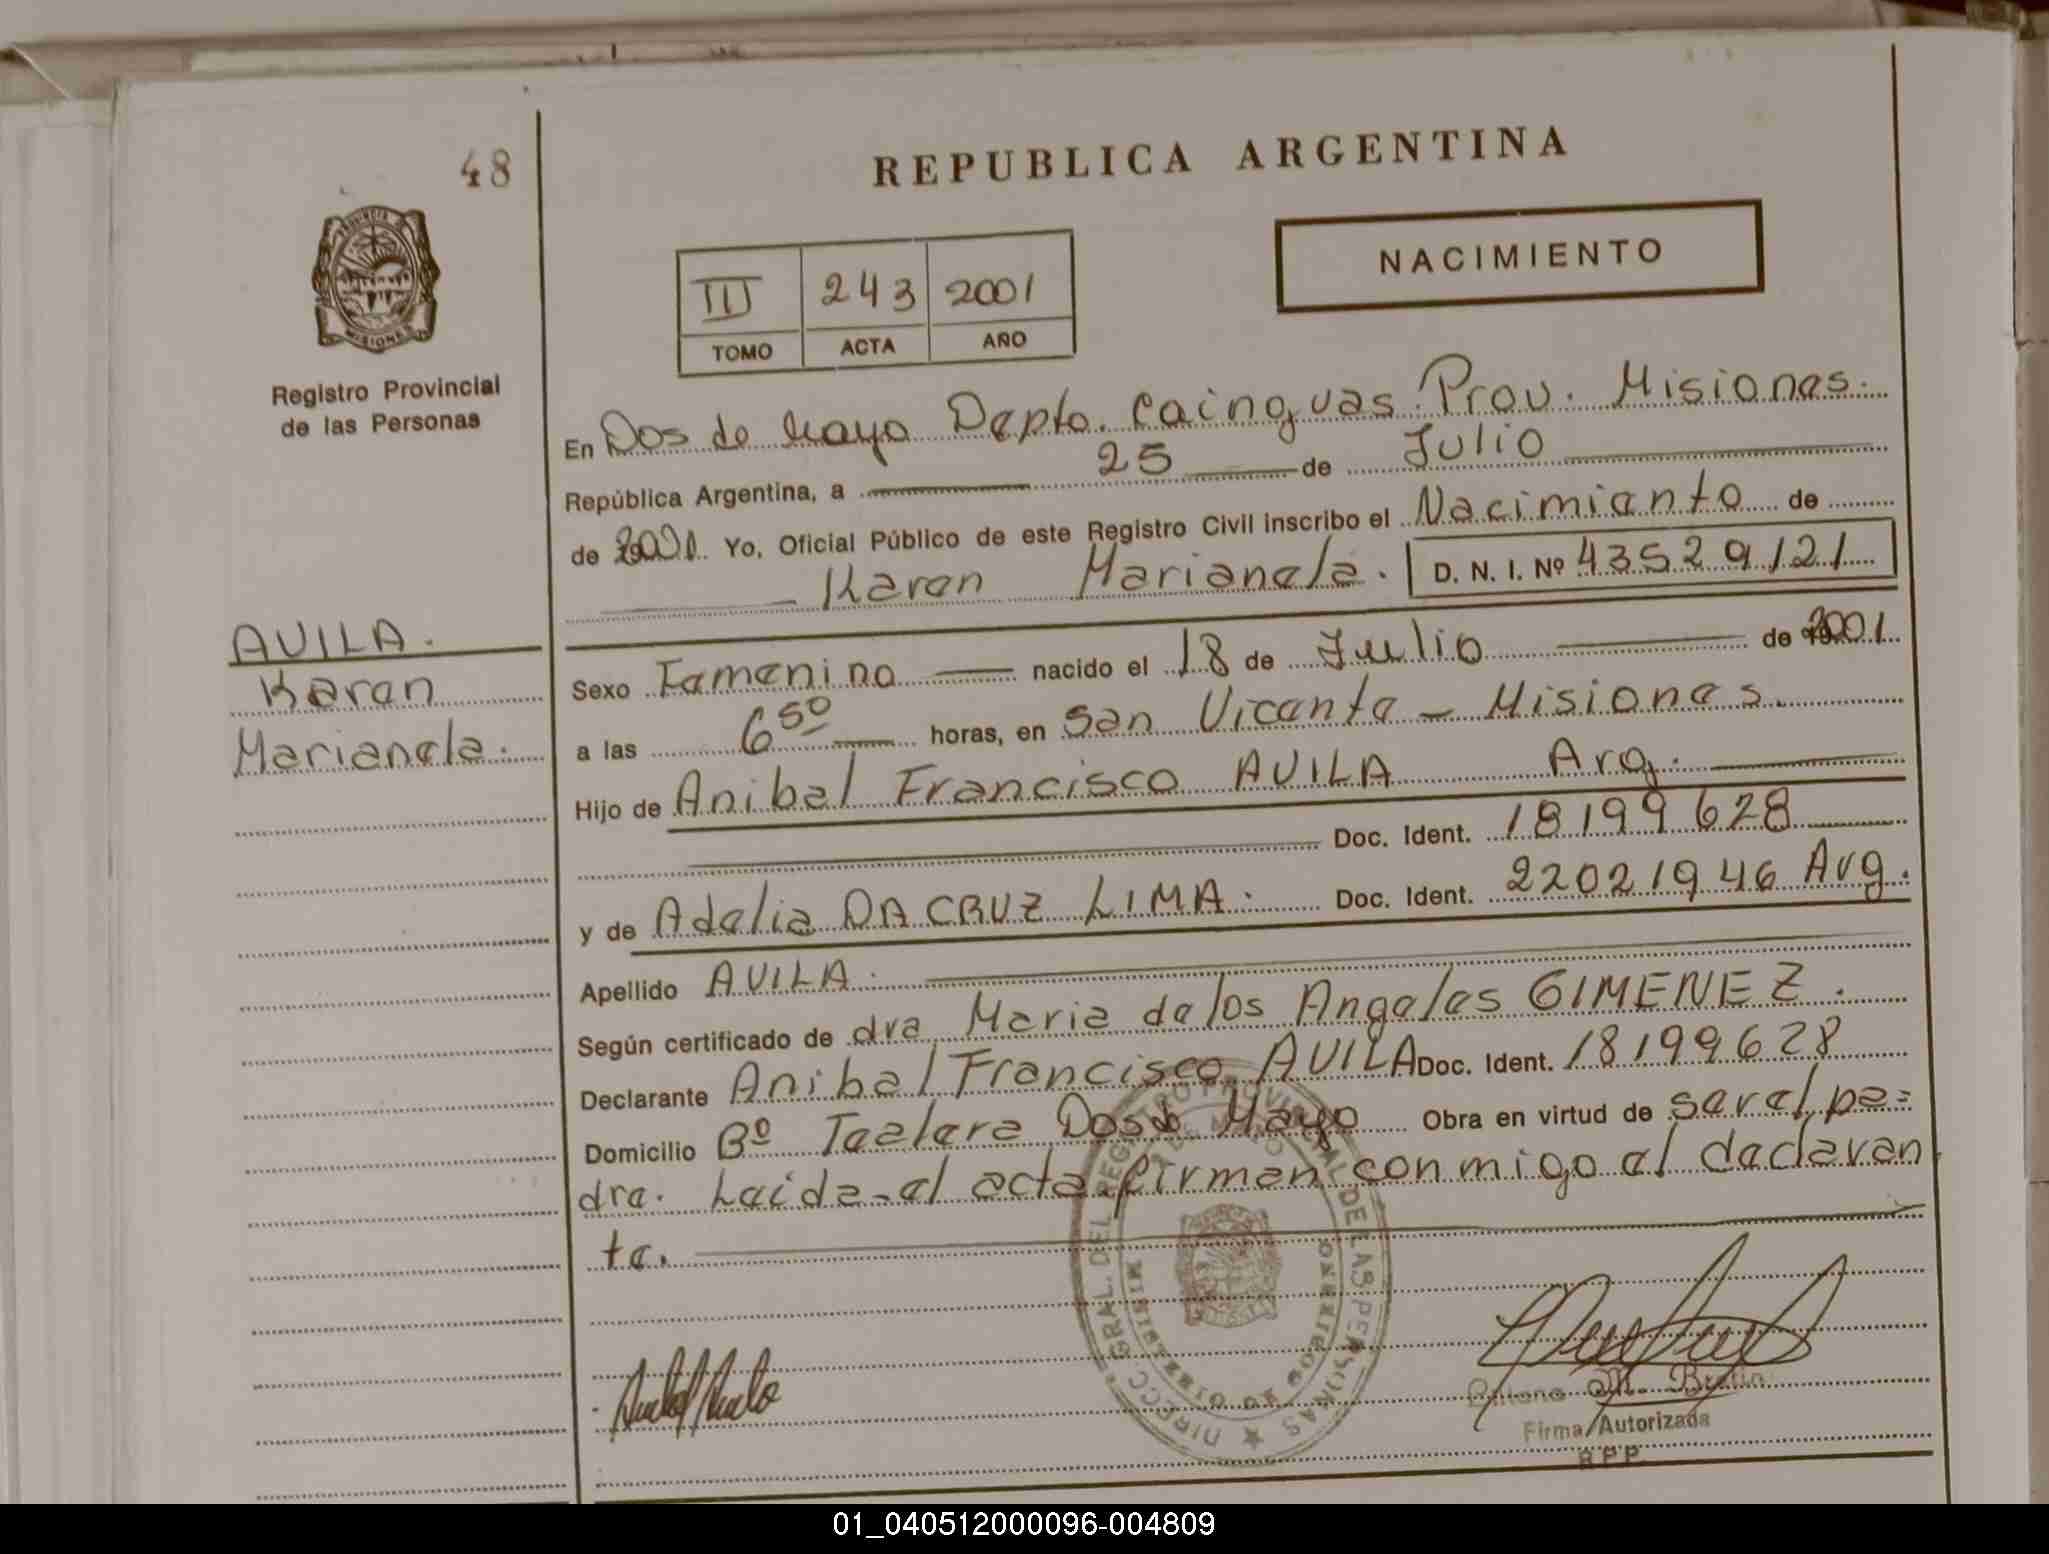 48
REPUBLICA ARGENTINA
NACIMIENTO
III 243 2001
TOMO ACTA AÑO
Registro Provincial
de las Personas
En Dos de Mayo Depto. Cainguas Prov. Misiones.
República Argentina, a 25 de Julio
de 2001. Yo, Oficial Público de este Registro Civil inscribo el Nacimiento de
Karen Marianela. D. N. I. Nº 43529121
AVILA.
Karen
Marianela.
Sexo Femenino nacido el 18 de Julio de 2001
a las 6 50 horas, en San Vicente - Misiones.
Hijo de Anibal Francisco AVILA Arg.
Doc. Ident. 18199628
y de Adelia DA CRUZ LIMA. Doc. Ident. 22021946 Arg.
Apellido AVILA.
Según certificado de dra Maria de los Angeles GIMENEZ.
Declarante Anibal Francisco AVILA Doc. Ident. 18199628
Domicilio Bº Dos de Mayo Obra en virtud de ser el pa=
dre. Leida el acta firman conmigo el declaran
te.
DIRECC. GRAL. DEL REGISTRO PROVINCIAL DE LAS PERSONAS
MINISTERIO DE GOBIERNO
MISIONES
M.
Firma Autorizada
R P P
01_040512000096-004809